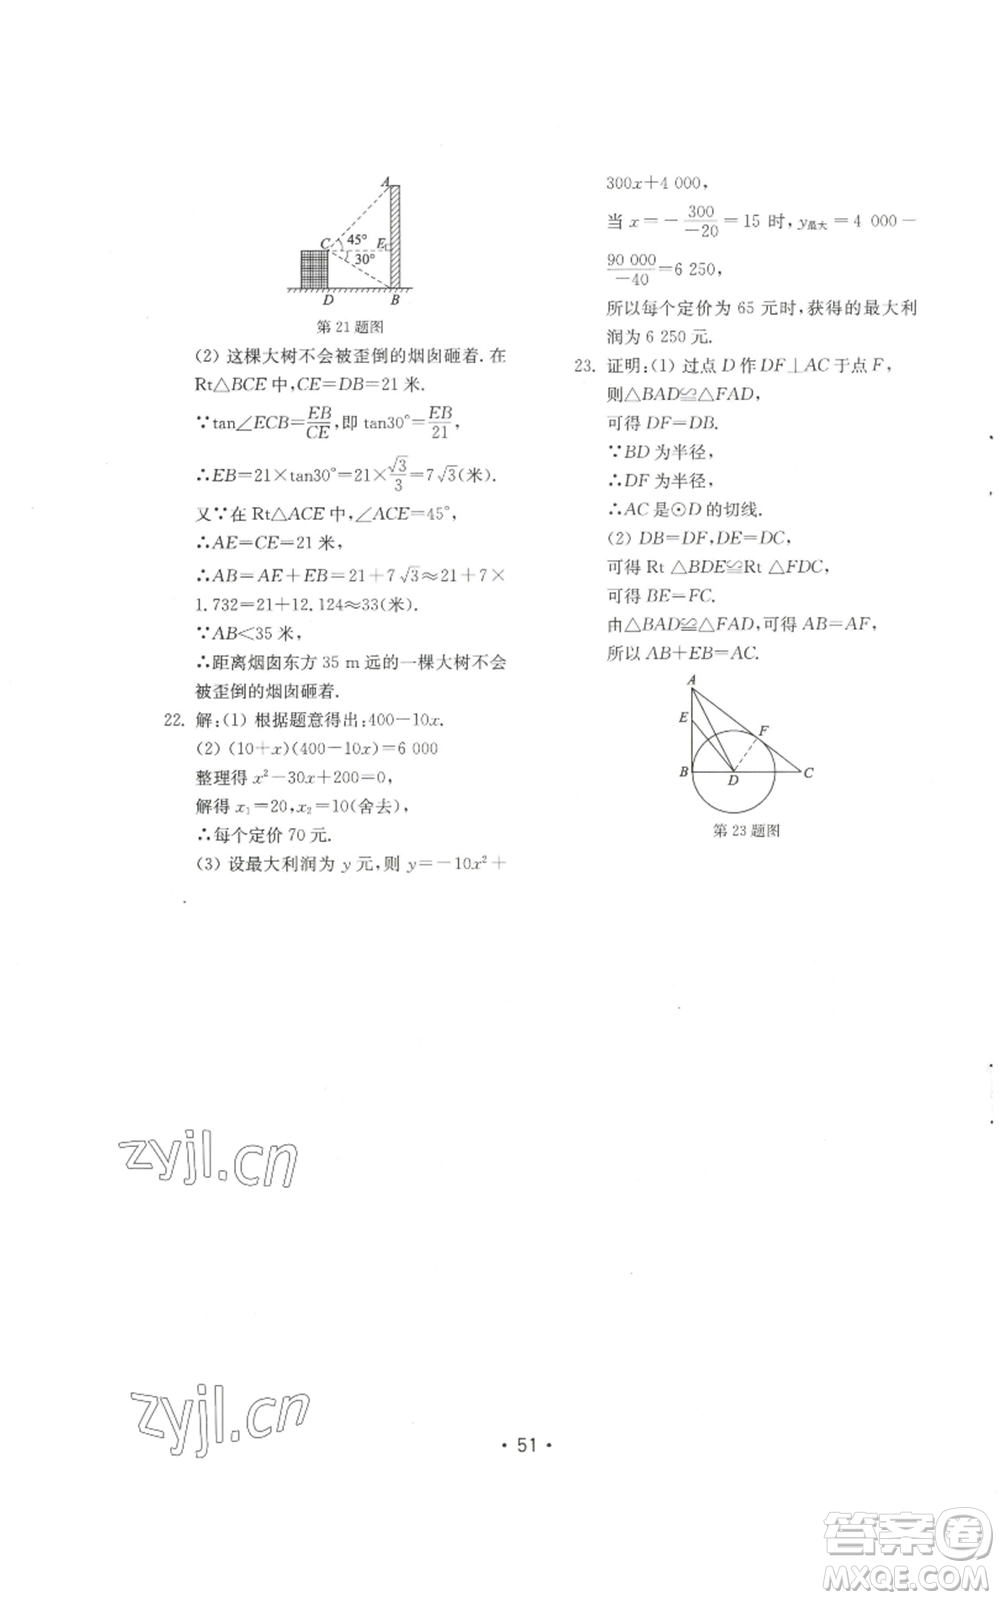 A
C
45°
E
30°
D
B
第21题图
(2) 这棵大树不会被歪倒的烟囱砸着. 在
Rt△BCE 中,CE=DB=21 米.
∵tan∠ECB=EB/CE,即 tan30°=EB/21,
∴EB=21×tan30°=21×√3/3=7√3(米).
又∵在 Rt△ACE 中,∠ACE=45°,
∴AE=CE=21 米,
∴AB=AE+EB=21+7√3≈21+7×
1.732=21+12.124≈33(米).
∵AB<35 米,
∴距离烟囱东方 35 m 远的一棵大树不会
被歪倒的烟囱砸着.
22. 解:(1) 根据题意得出:400-10x.
(2) (10+x)(400-10x)=6 000
整理得 x²-30x+200=0,
解得 x₁=20,x₂=10(舍去),
∴每个定价 70 元.
(3) 设最大利润为 y 元,则 y=-10x²+
300x+4 000,
当 x=-300/-20=15 时,y最大=4 000-
90 000/-40=6 250,
所以每个定价为 65 元时,获得的最大利
润为 6 250 元.
23. 证明:(1) 过点 D 作 DF⊥AC 于点 F,
则△BAD≌△FAD,
可得 DF=DB.
∵BD 为半径,
∴DF 为半径,
∴AC 是⊙D 的切线.
(2) DB=DF,DE=DC,
可得 Rt △BDE≌Rt △FDC,
可得 BE=FC.
由△BAD≌△FAD,可得 AB=AF,
所以 AB+EB=AC.
A
E
F
B
D
C
第23题图
zyjl.cn
zyjl.cn
• 51 •
答案卷
MXQE.COM